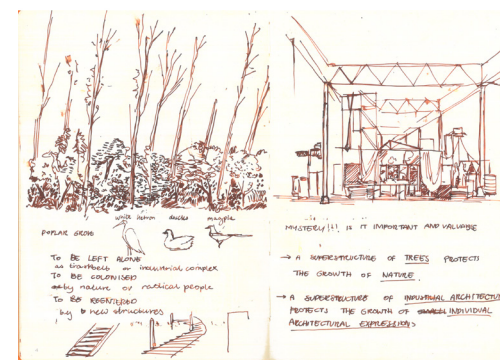 white heron ducks magpie
POPLAR GROVE
TO BE LEFT ALONE
as treebelt or industrial complex
TO BE COLONISED
by nature or radical people
TO BE REENTERED
by new structures
MYSTERY IS IT IMPORTANT AND VALUABLE
→ A SUPERSTRUCTURE OF TREES PROTECTS
THE GROWTH OF NATURE
→ A SUPERSTRUCTURE OF INDUSTRIAL ARCHITECTU
PROTECTS THE GROWTH OF INDIVIDUAL
ARCHITECTURAL EXPRESSIONS